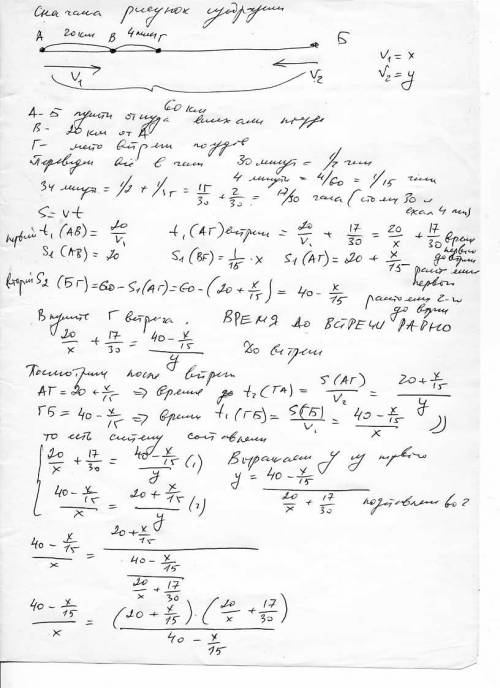 сначала рисунок изобразим
20 км 4 мин
А В Г Б
V₁ V₂
V₁ = x
V₂ = y
60 км
А-Б пункты откуда выехали поезда
В- 20 км от А
Г- место встречи поездов
Переведём всё в часы 30 минут = 1/2 часа
4 минуты = 4/60 = 1/15 часа
34 минуты = 1/2 + 1/15 = 15/30 + 2/30 = 17/30 часа (стоял 30 и ехал 4 мин)
S = vt
первый t₁(АВ) = 20/V₁ t₁(АГ) встречи = 20/V₁ + 17/30 = 20/x + 17/30 время первого до встречи
S₁(АВ) = 20 S₁(ВГ) = 1/15 · x S₁(АГ) = 20 + x/15 расстояние первого
второй S₂(БГ) = 60 - S₁(АГ) = 60 - (20 + x/15) = 40 - x/15 расстояние 2-го до встречи
В пункте Г встреча. ВРЕМЯ ДО ВСТРЕЧИ РАВНО
20/x + 17/30 = (40 - x/15)/y До встречи
Посмотрим после встречи
АГ = 20 + x/15 ⇒ время до t₂(ГА) = S(АГ)/V₂ = (20 + x/15)/y
ГБ = 40 - x/15 ⇒ время t₁(ГБ) = S(ГБ)/V₁ = (40 - x/15)/x
то есть систему составляем
{ 20/x + 17/30 = (40 - x/15)/y (1) Выражаем y из первого
(40 - x/15)/x = (20 + x/15)/y (2) y = (40 - x/15)/(20/x + 17/30) подставляем во 2
(40 - x/15)/x = (20 + x/15)/((40 - x/15)/(20/x + 17/30))
(40 - x/15)/x = (20 + x/15) · (20/x + 17/30)/(40 - x/15)